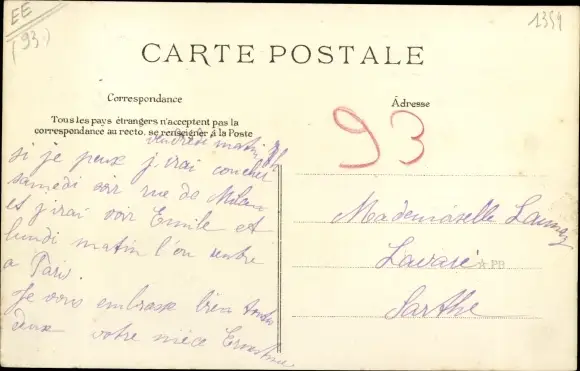 EE
(93)
1359
CARTE POSTALE
Correspondance
Tous les pays étrangers n'acceptent pas la
correspondance au recto. se renseigner à la Poste
Adresse
93
vendredi matin 9h
si je peux j'irai coucher
samedi soir rue de Milan
et j'irai voir Emile et
lundi matin l'on rentre
a Paris.
Je vous embrasse bien toutes
deux votre nièce Ernestine
Mademoiselle Launay
Lavaré
PB
Sarthe